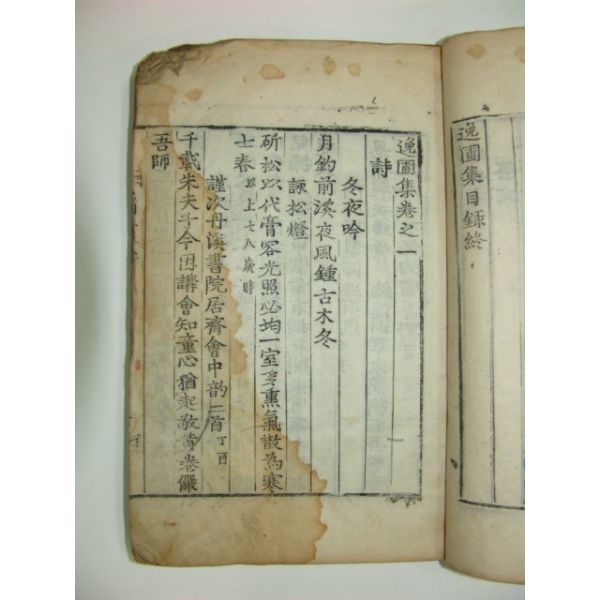 逸圃集目錄終
逸圃集卷之一
詩
冬夜吟
月釣前溪夜風鍾古木冬
詠松燈
斫松以代膏容光照必均一室多熏氣散為寒
士春以上七八歲時
謹次丹溪書院居齋會中韵二首丁酉
千載朱夫子今因講會知童心猶起敬黃卷儼
吾師